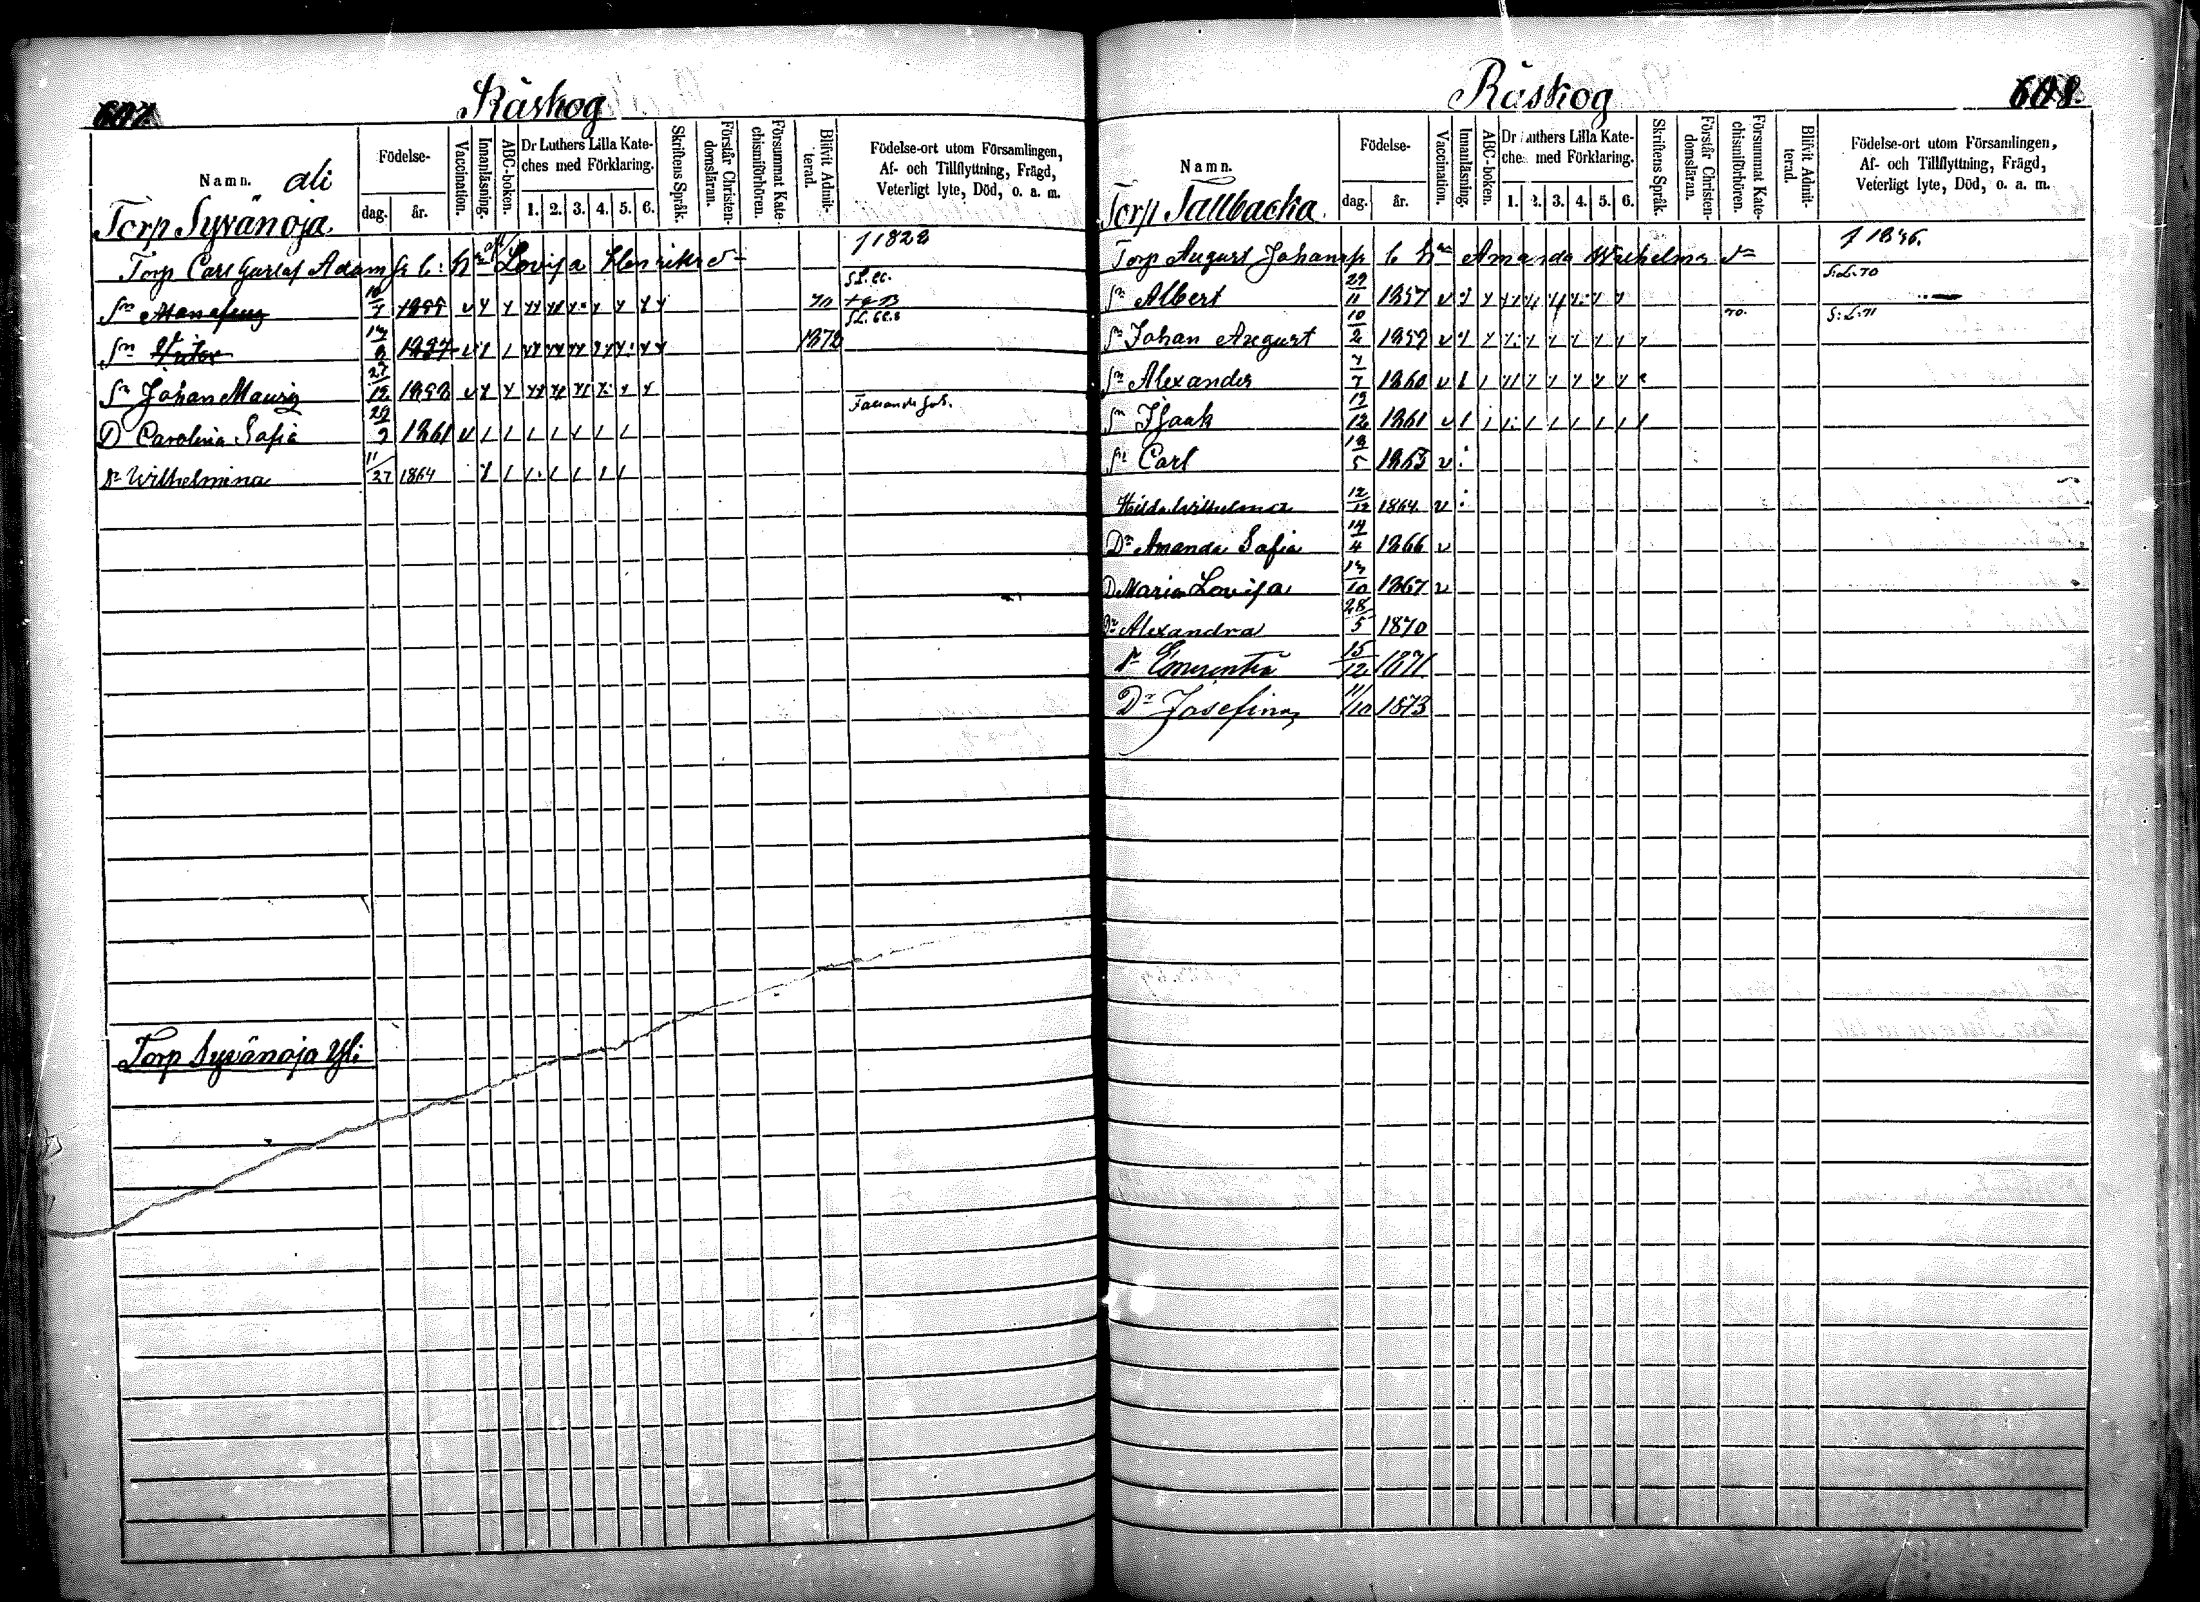 607.
Råskog
Namn.
Födelse-
dag.
år.
Vaccination.
Innanläsning.
ABC-boken.
Dr Luthers Lilla Kate-
ches med Förklaring.
1. 2. 3. 4. 5. 6.
Skriftens Språk.
Förstår Christen-
domsläran.
Försummat Kate-
chismiförhören.
Blifvit Admit-
terad.
Födelse-ort utom Församlingen,
Af- och Tillflyttning, Frägd,
Veterligt lyte, Död, o. a. m.
ali
Torp Syvänoja
Torp Carl Gustaf Adamss l: h Lovisa Henriksd f 1828
Sn 1855 70
Sn Victor 1857 1872
Sn Johan Mauriz 27/12 1858
D Carolina Safia 29/9 1861
Dr Wilhelmina 11/27 1864
Torp Syvänoja Yli
608.
Råskog
Namn.
Födelse-
dag.
år.
Vaccination.
Innanläsning.
ABC-boken.
Dr Luthers Lilla Kate-
ches med Förklaring.
1. 2. 3. 4. 5. 6.
Skriftens Språk.
Förstår Christen-
domsläran.
Försummat Kate-
chismiförhören.
Blifvit Admit-
terad.
Födelse-ort utom Församlingen,
Af- och Tillflyttning, Frägd,
Veterligt lyte, Död, o. a. m.
Torp Tallbacka
Torp August Johanss l h Amanda Wilhelma dr f 1836.
Sn Albert 29/11 1857 S:L:70
Sn Johan August 10/2 1859 70. S:L:71
Sn Alexander 7/7 1860
Sn Isaak 19/12 1861
Sn Carl 18/5 1863
Hilda Wilhelmina 12/12 1864
Dr Amanda Safia 14/4 1866
D Maria Lovisa 13/10 1867
Dr Alexandra 28/5 1870
Dr Emerentia 15/12 1871
Dr Josefina 11/10 1873